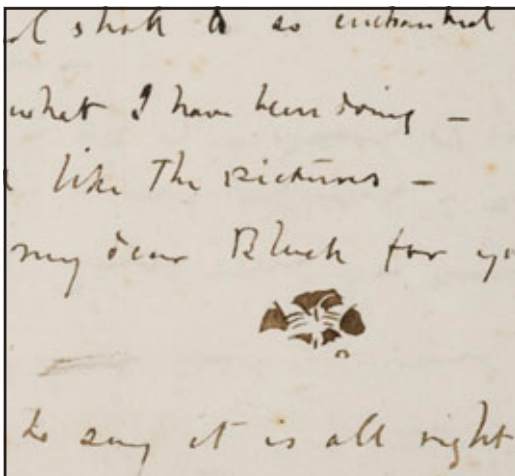 I shall be so enchanted
what I have been doing –
like The Pictures –
my dear Bluck for yo
to say it is all right